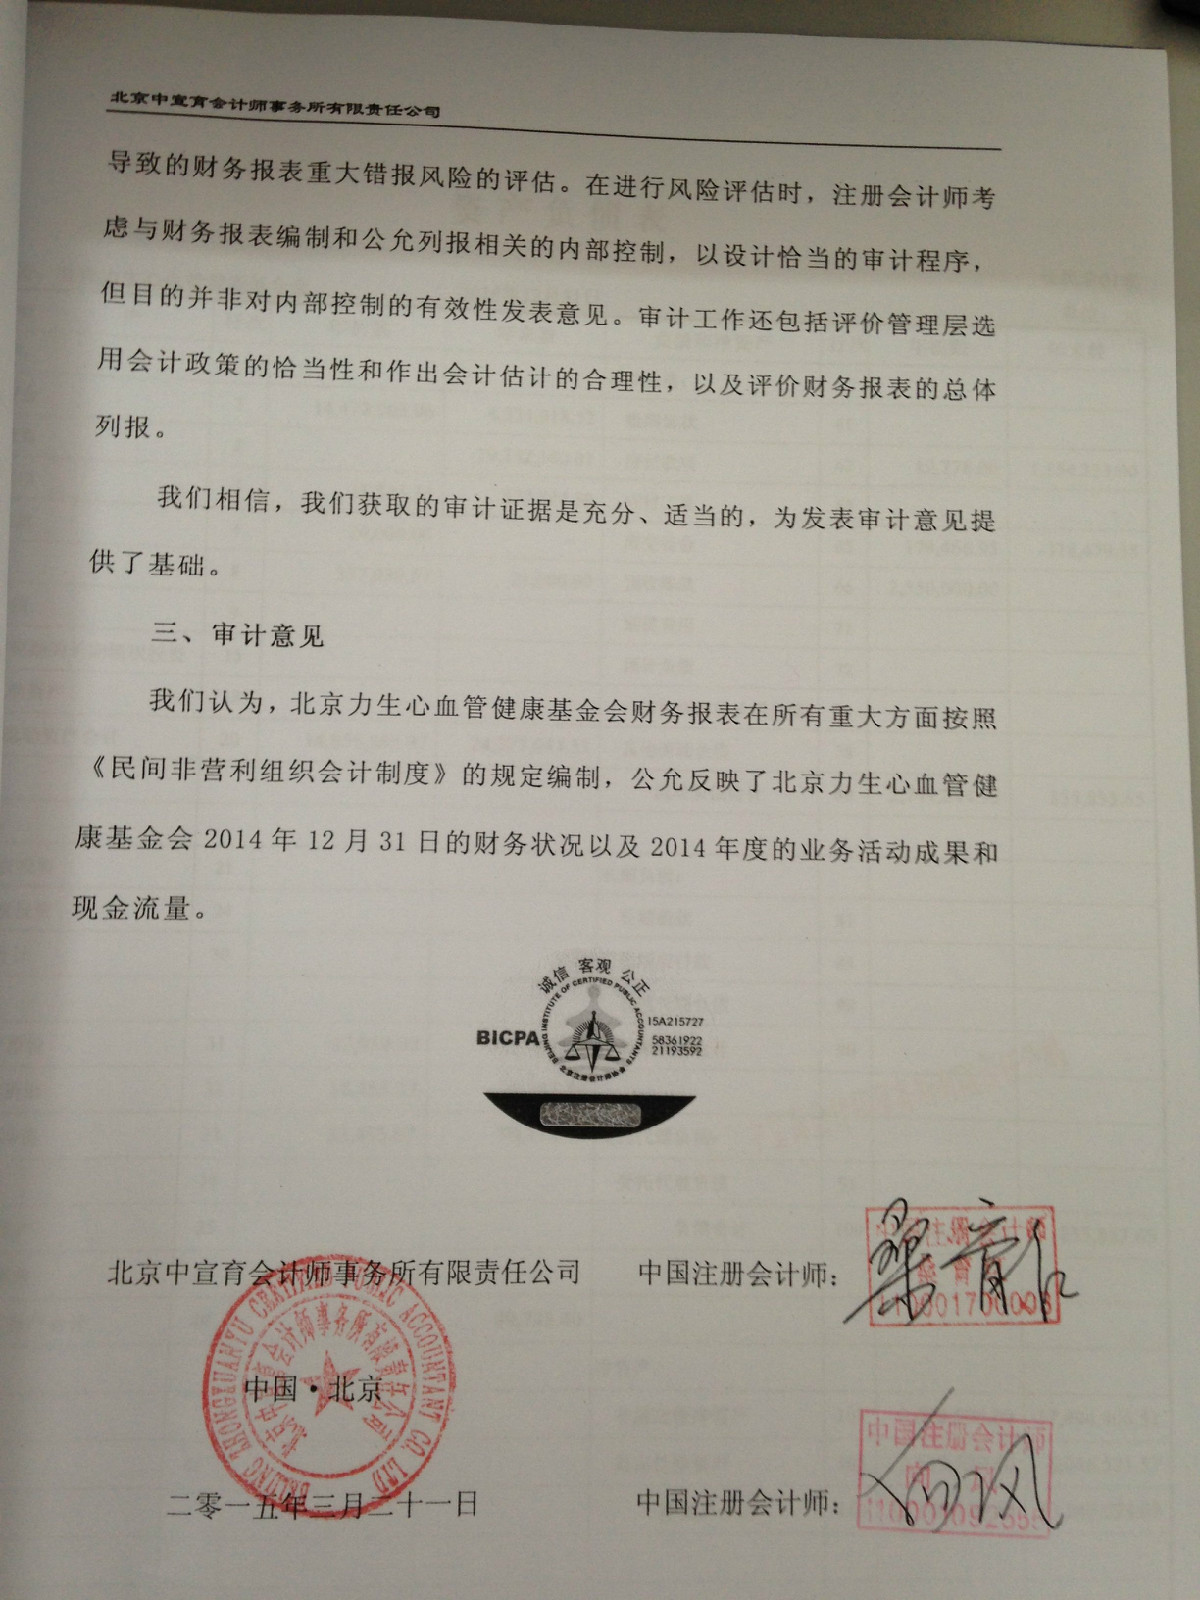 北京中宣育会计师事务所有限责任公司
导致的财务报表重大错报风险的评估。在进行风险评估时，注册会计师考
虑与财务报表编制和公允列报相关的内部控制，以设计恰当的审计程序，
但目的并非对内部控制的有效性发表意见。审计工作还包括评价管理层选
用会计政策的恰当性和作出会计估计的合理性，以及评价财务报表的总体
列报。
我们相信，我们获取的审计证据是充分、适当的，为发表审计意见提
供了基础。
三、审计意见
我们认为，北京力生心血管健康基金会财务报表在所有重大方面按照
《民间非营利组织会计制度》的规定编制，公允反映了北京力生心血管健
康基金会 2014 年 12 月 31 日的财务状况以及 2014 年度的业务活动成果和
现金流量。
诚信 客观 公正
BEIJING INSTITUTE OF CERTIFIED PUBLIC ACCOUNTANTS
北京注册会计师协会
BICPA
15A215727
58361922
21193592
北京中宣育会计师事务所有限责任公司
中国注册会计师：
中国注册会计师
BEIJING ZHONGXUANYU CERTIFIED PUBLIC ACCOUNTANT CO. LTD
北京中宣育会计师事务所有限责任公司
中国·北京
二零一五年三月二十一日
中国注册会计师：
中国注册会计师
向风